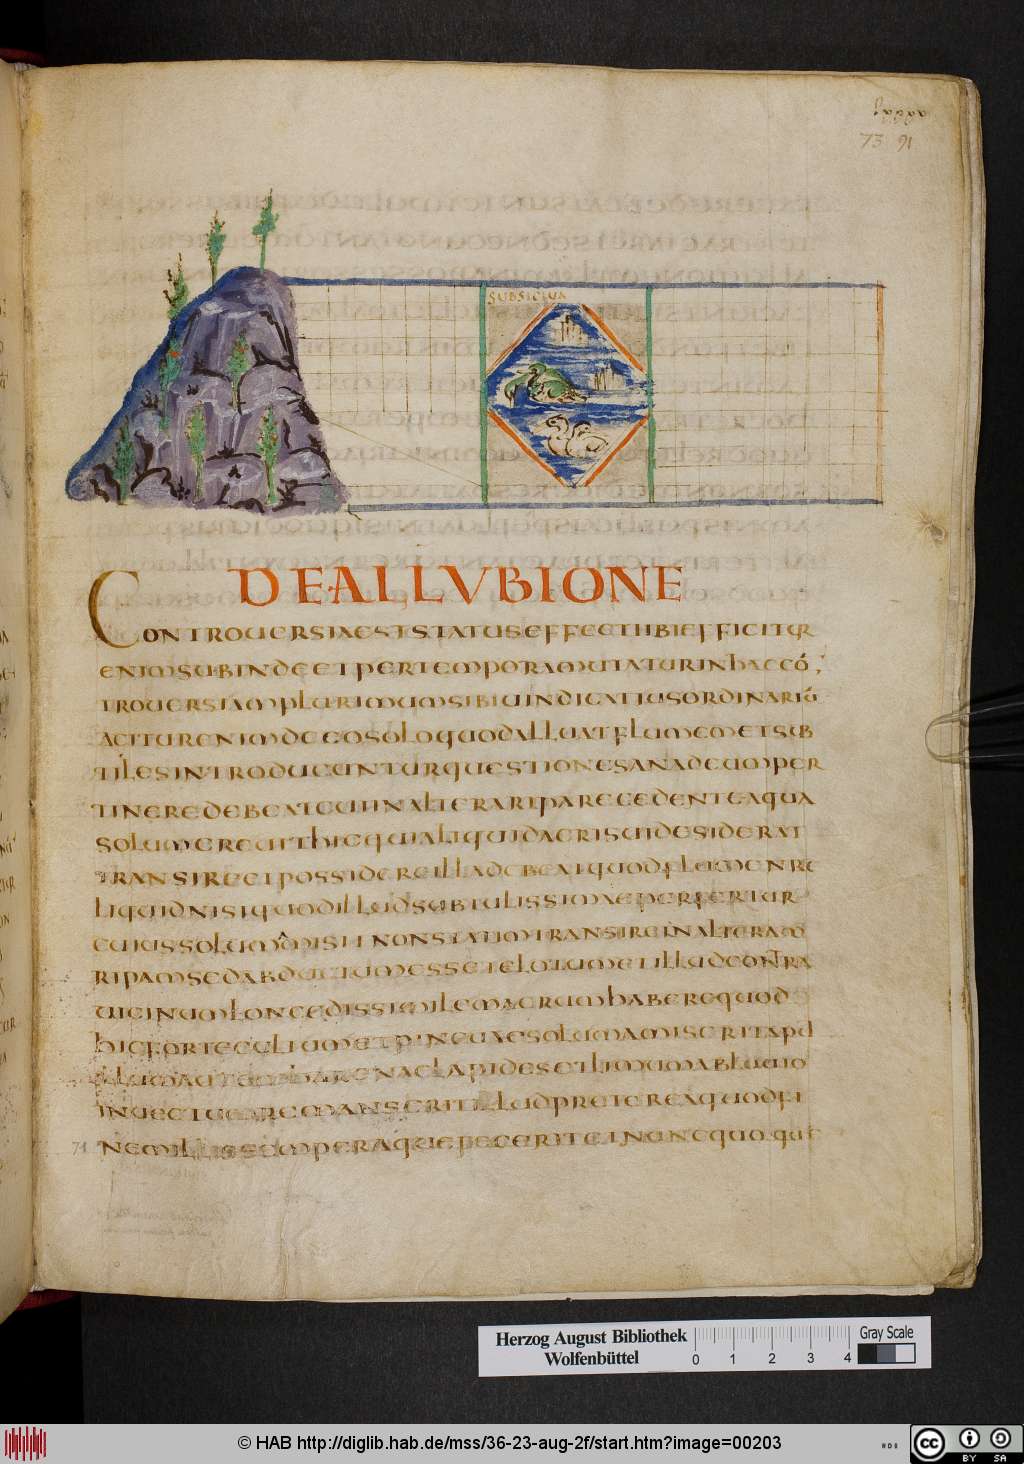 73 91
SUBSICIUA
DE ALLVBIONE
CONTROUERSIAEST STATUS EFFECTIBI EFFICITUR
ENIM SUBINDE ET PER TEMPORA MUTATUR IN HAC CÓ
TROUERSIA MPLURIMUM SIBI UINDICAT IUS ORDINARIŪ
ACITUR ENIM DE EO SOLO QUOD ALLUAT FLUMEM ET SUB
TILES INTRODUCUNTUR QUESTIONES AN AD EUM PER
TINERE DEBEAT CUI IN ALTERA RIPA RECEDENTE AQUA
SOLUM CREUIT HIC QUI ALIQUID ACRIS UI DESIDERAT
TRANSIRE ET POSSIDERE ILLA DEBEAT QUOD FLUMEN RE
LIQUID NISI QUOD ILLUD SUBTILISSIMAE PERFERTUR
CUIUS SOLUM AMISIT NON STATIM TRANSIRE IN ALTERAM
RIPAM SED ABDUCTUM ESSE ET ELOTUM ET ILLUD CONTRA
UICINUM LONCE DISSIMILEM ACRUM HABERE QUOD
HIC FORTE CULTUM ET PINCUAE SOLUM AMISERIT APU
ILLUM AUTEM HARENAE LAPIDES ET LIMUM ABLUUIO
INUECTUM REMANSERIT ILLUD PRETEREA QUOD FI
71 NEM ILLIS SEMPER AQUE FECERIT EI NUNC QUOQUE
Herzog August Bibliothek
Wolfenbüttel
0 1 2 3 4
Gray Scale
© HAB http://diglib.hab.de/mss/36-23-aug-2f/start.htm?image=00203
cc BY SA